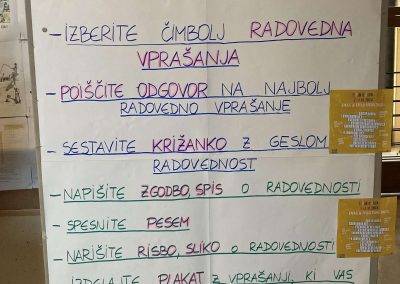 - IZBERITE ČIMBOLJ RADOVEDNA
VPRAŠANJA
- POIŠČITE ODGOVOR NA NAJBOLJ
RADOVEDNO VPRAŠANJE
- SESTAVITE KRIŽANKO Z GESLOM
RADOVEDNOST
- NAPIŠITE ZGODBO, SPIS O RADOVEDNOSTI
- SPESNITE PESEM
- NARIŠITE RISBO, SLIKO O RADOVEDNOSTI
- IZDELAJTE PLAKAT Z VPRAŠANJI, KI VAS